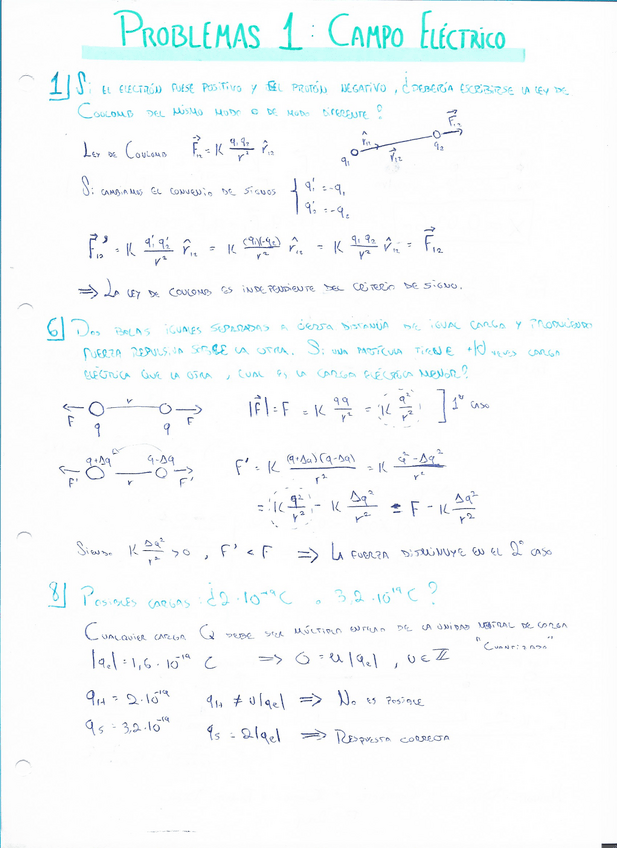 PROBLEMAS 1: CAMPO ELÉCTRICO
1| Si EL ELECTRÓN FUESE POSITIVO Y EL PROTÓN NEGATIVO, ¿DEBERÍA ESCRIBIRSE LA LEY DE
COULOMB DEL MISMO MODO O DE MODO DIFERENTE?
LEY DE COULOMB F⃗₁₂ = K q₁q₂/r² r̂₁₂
q₁ r̂₁₂ r⃗₁₂ q₂ F⃗₁₂
Si CAMBIAMOS EL CONVENIO DE SIGNOS { q₁' = -q₁
q₂' = -q₂
F⃗₁₂' = K q₁'q₂'/r² r̂₁₂ = K (-q₁)(-q₂)/r² r̂₁₂ = K q₁q₂/r² r̂₁₂ = F⃗₁₂
⇒ LA LEY DE COULOMB ES INDEPENDIENTE DEL CRITERIO DE SIGNO.
6| DOS BOLAS IGUALES SEPARADAS A CIERTA DISTANCIA DE IGUAL CARGA Y PRODUCIENDO
FUERZA REPULSIVA SOBRE LA OTRA. Si UNA PARTÍCULA TIENE CARGA
ELÉCTRICA QUE LA OTRA, CUAL ES LA CARGA ELÉCTRICA MENOR?
F q r q F
|F⃗| = F = K qq/r² = K q²/r² ] 1º CASO
F' q+Δq r q-Δq F'
F' = K (q+Δq)(q-Δq)/r² = K q²-Δq²/r²
= K q²/r² - K Δq²/r² = F - K Δq²/r²
Siendo K Δq²/r² > 0, F' < F ⇒ LA FUERZA DISMINUYE EN EL 2º CASO
8| POSIBLES CARGAS: ¿2·10⁻¹⁹ C o 3,2·10⁻¹⁹ C?
CUALQUIER CARGA Q DEBE SER MÚLTIPLO ENTERO DE LA UNIDAD NATURAL DE CARGA
"CUANTIZADO"
|qe| = 1,6·10⁻¹⁹ C ⇒ Q = n|qe|, n∈ℤ
qH = 2·10⁻¹⁹ qH ≠ n|qe| ⇒ NO ES POSIBLE
qS = 3,2·10⁻¹⁹ qS = 2|qe| ⇒ RESPUESTA CORRECTA